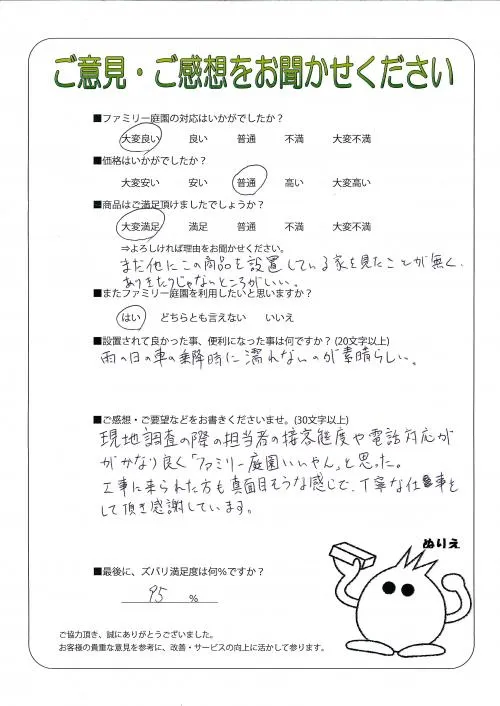 ご意見・ご感想をお聞かせください
■ファミリー庭園の対応はいかがでしたか?
大変良い 良い 普通 不満 大変不満
■価格はいかがでしたか?
大変安い 安い 普通 高い 大変高い
■商品はご満足頂けましたでしょうか?
大変満足 満足 普通 不満 大変不満
⇒よろしければ理由をお聞かせください。
まだ他にこの商品を設置している家を見たことが無く、
ありきたりじゃないところがいい。
■またファミリー庭園を利用したいと思いますか?
はい どちらとも言えない いいえ
■設置されて良かった事、便利になった事は何ですか? (20文字以上)
雨の日の車の乗降時に濡れないのが素晴らしい。
■ご感想・ご要望などをお書きくださいませ。(30文字以上)
現地調査の際の担当者の接客態度や電話対応が
がかなり良く「ファミリー庭園いいやん」と思った。
工事に来られた方も真面目そうな感じで、丁寧な仕事を
して頂き感謝しています。
ぬりえ
■最後に、ズバリ満足度は何%ですか?
95 %
ご協力頂き、誠にありがとうございました。
お客様の貴重な意見を参考に、改善・サービスの向上に活かして参ります。